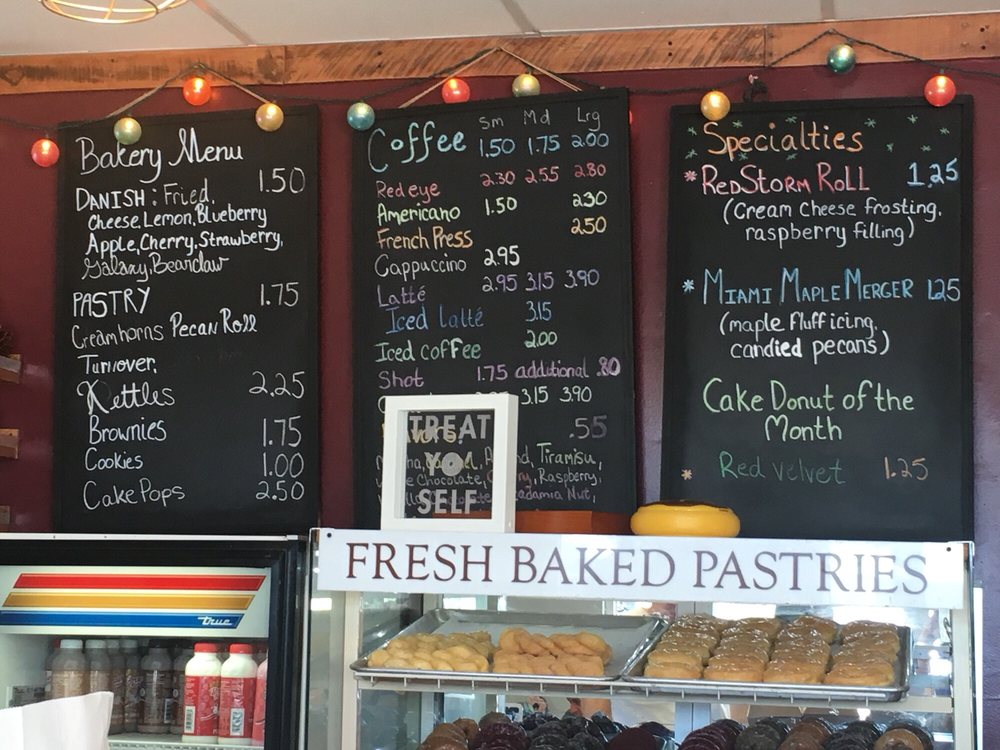 Bakery Menu
DANISH: Fried, 1.50
Cheese, Lemon, Blueberry
Apple, Cherry, Strawberry,
Galaxy, Bearclaw
PASTRY 1.75
Creamhorns Pecan Roll
Turnover,
Kettles 2.25
Brownies 1.75
Cookies 1.00
Cake Pops 2.50
Sm Md Lrg
Coffee 1.50 1.75 2.00
Red eye 2.30 2.55 2.80
Americano 1.50 2.30
French Press 2.50
Cappuccino 2.95
Latté 2.95 3.15 3.90
Iced latté 3.15
Iced coffee 2.00
Shot 1.75 additional .80
3.15 3.90
.55
Tiramisu,
Chocolate, Raspberry,
Nut,
TREAT
YO
SELF
Specialties
*RED STORM ROLL 1.25
(Cream Cheese frosting,
raspberry filling)
*MIAMI MAPLE MERGER 1.25
(maple fluff icing,
candied pecans)
Cake Donut of the
Month
* Red velvet 1.25
FRESH BAKED PASTRIES
true